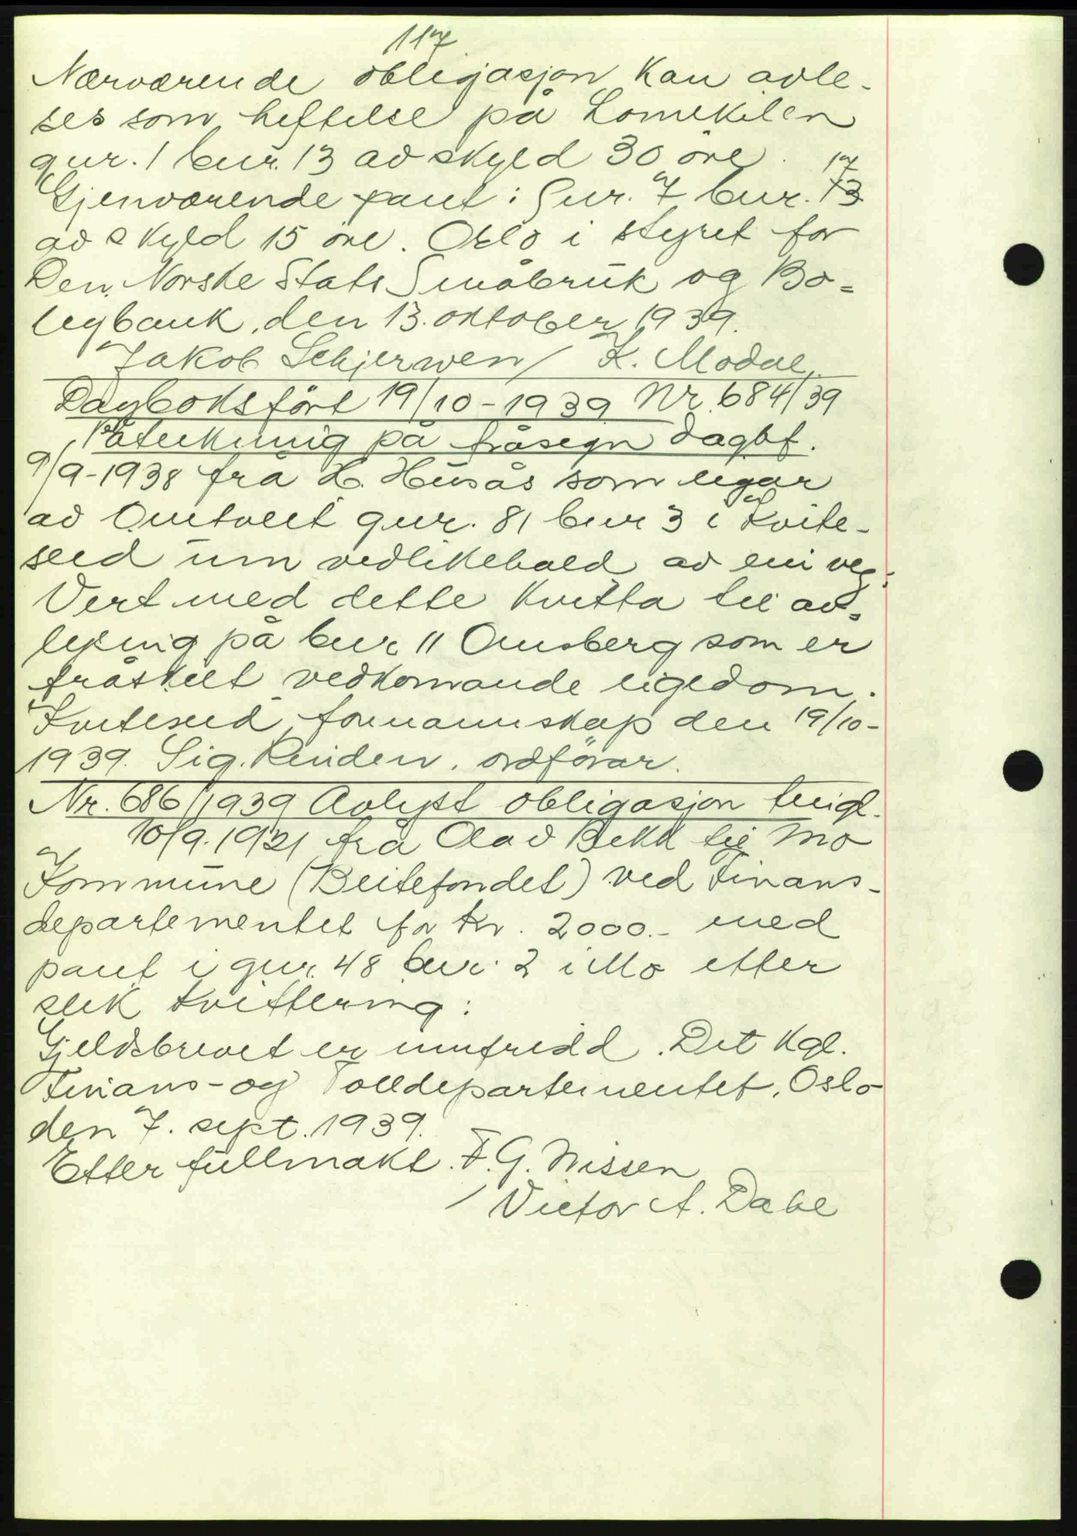 117
Nærværende obligasjon kan avle-
ses som heftelse på Lomekilen
gnr. 1 bnr. 13 av skyld 30 øre.
Gjenværende pant: Gnr. 7 bnr. 13 17
av skyld 15 øre. Oslo i styret for
Den Norske Stats Småbruk og Bo-
ligbank, den 13. oktober 1939.
Jakob Schjerwen / K. Modal
Dagboksført 19/10-1939 Nr. 684/39
Påteikning på fråsegn dagbf.
9/9-1938 frå H. Husås som eigar
av Omtveit gnr. 81 bnr 3 i Kvite-
seid um vedlikehald av ein veg:
Vert med dette kvitta til av-
lysing på bnr 11 Omsberg som er
fråskilt vedkomande eigedom.
Kviteseid formannskap den 19/10-
1939. Sig. Rinden. ordförar.
Nr. 686/1939 Avlyst obligasjon tingl.
10/9.1921 frå Olav Bekk til Mo
Kommune (Beitefondet) ved Finans-
departementet for kr. 2000.- med
pant i gnr. 48 bnr. 2 i Mo etter
slik kvittering:
Gjeldsbrevet er innfridd. Det kgl.
Finans- og Tolldepartementet, Oslo
den 7. sept. 1939.
Etter fullmakt. F. G. Nissen
/ Victor A. Dahl